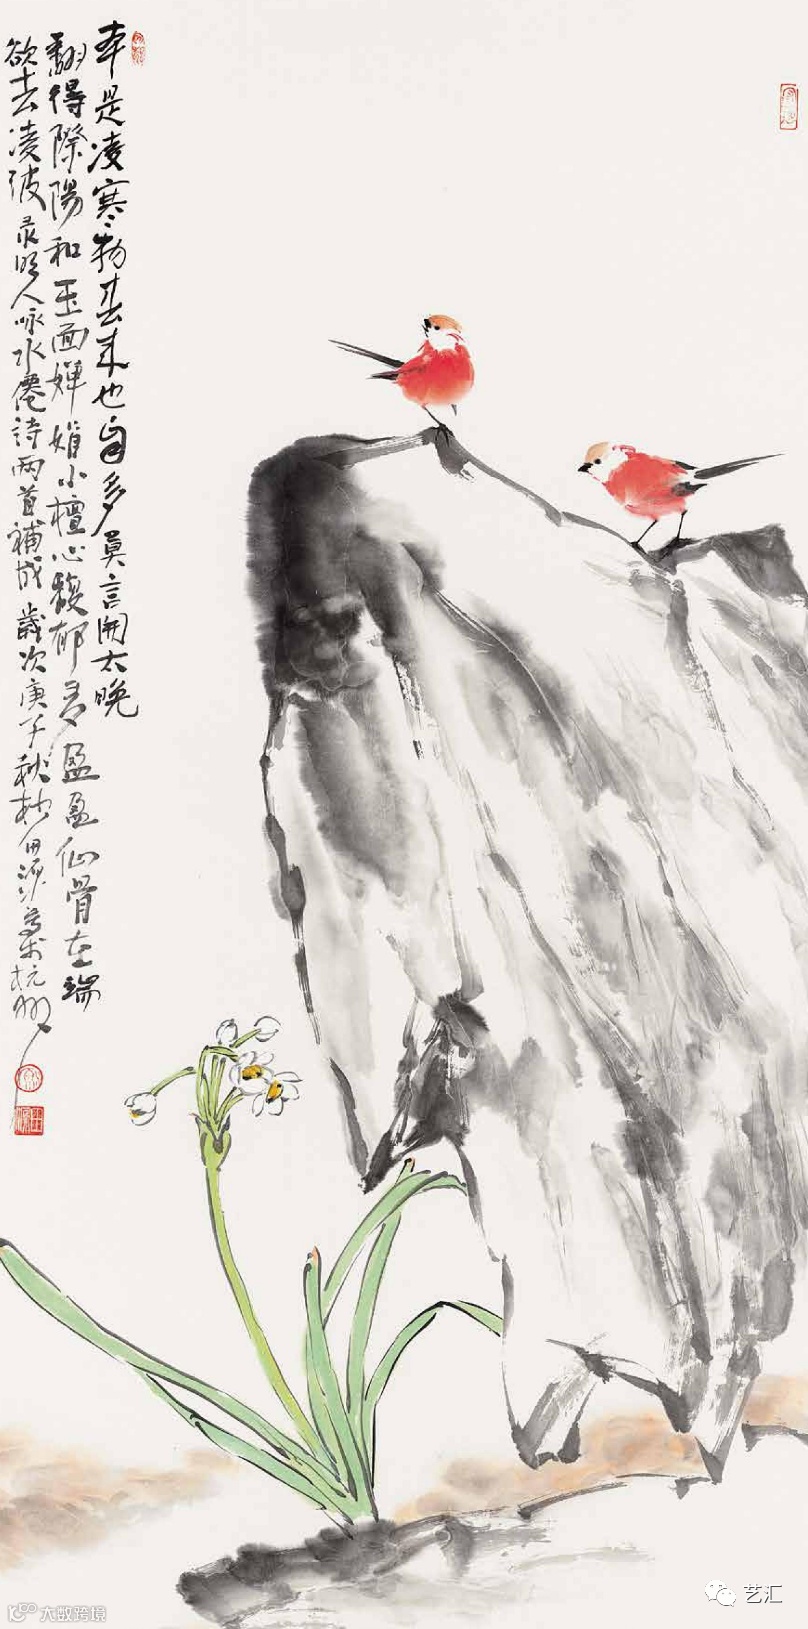 本是凌寒物春来也自多莫言開太晚
翻得際陽和玉面嬋娟小檀心馥郁多盈盈仙骨在端
欲去凌波录明人咏水僊詩兩首補成歲次庚子秋杪田源寫於杭州
大数跨境
艺汇